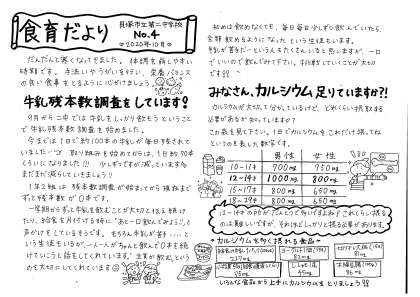 食育だより
貝塚市立第二中学校
No.4
～2020年10月～
だんだんと寒くなってきました。体調を崩しやすい
時期です。手洗いやうがいをして、栄養バランス
の良い食事をとるように心がけましょう。
牛乳残本数調査をしています！
9月から二中では牛乳をしっかり飲もうということ
で牛乳残本数調査を始めました。
今までは1日で約100本の牛乳が毎日残されて
いました… 取り組みを始めてからは、1日約70本
くらいになりました!!! 少しずつですが減っています
まだまだ減らしていきましょう!!
1年2組は残本数調査が始まってから積極的
ずっと残本数が0本です。
一学期からずっと牛乳を飲むことが大切と伝え続け
たり、給食を片付ける時に「あと一口飲んでみよう」と
声かけをしているそうです。もちろん牛乳が苦手…と
いう生徒もいるが、一人一人がちゃんと飲んで0本を続
けていこうと話をしてくれています。主菜が飲む
のを大切にしてくれています
初めは飲めなくても、毎日毎日少しずつ飲んでいたら
全部飲めるようになったという生徒もいます。
牛乳が苦手だーという人もたくさんいると思いますが、一口
でいいので飲んでみて下さい。挑戦していくことが大切
です!!
みなさん、カルシウム足りていますか?!
カルシウムが大切と十分しているけど、どれくらい摂取する
必要があるか知っていますか？
この表を見て下さい。1日でカルシウムをこれだけ摂ってね
というのを表した数字です。
男性 女性
10-11才 700mg 750mg
12-14才 1000mg 800mg
15-17才 800mg 650mg
18-29才 800mg 650mg
12-14才のところがだんとつで多いですよね？これぐらい摂る
のは難しいですが、それほどしっかり摂る必要があります。
～カルシウムを多く摂れる食品～
227mg
ヨーグルト
しらす
45mg
86mg
いろんな食品から上手にカルシウムをとりましょう!!